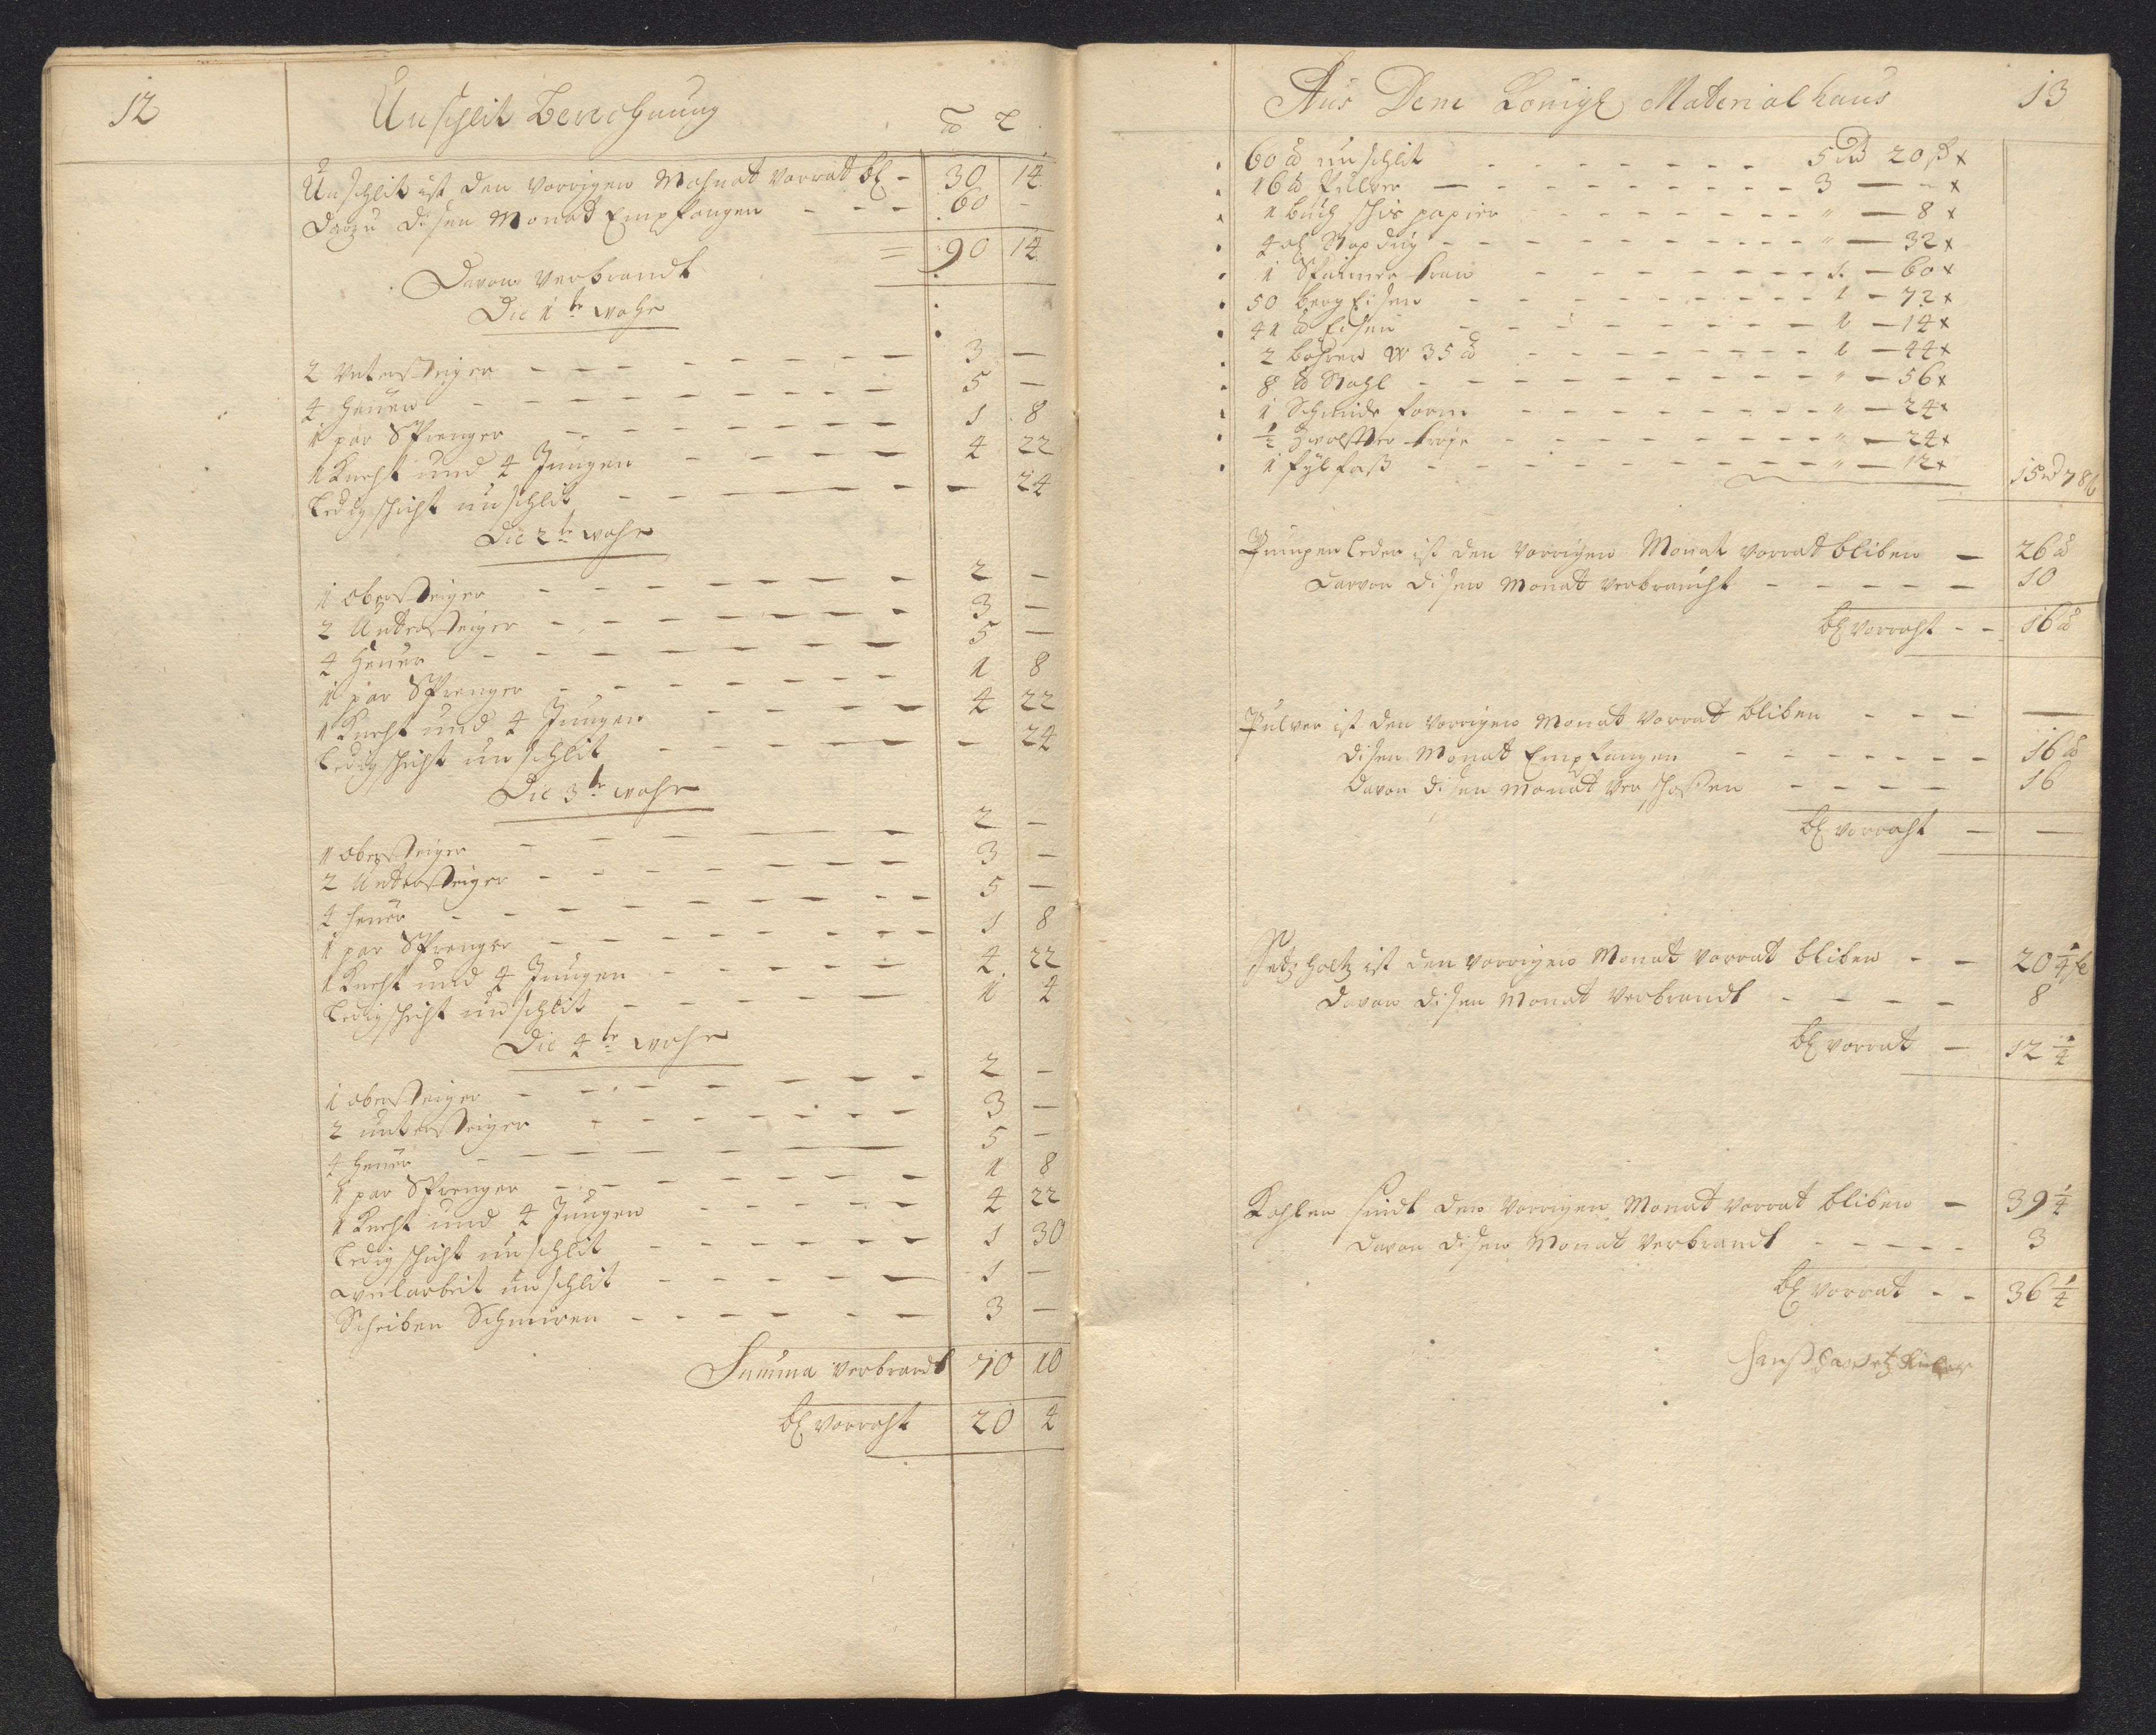 12
Unschlit Berechnung
℔ L
Unschlit ist den vorrigen Mohnat vorrat bl - 30 14
Darzu disen Monat Empfangen - - - 60 -
= 90 14
Davon verbrandt
Die 1te wohe
2 Untersteiger - - - - 3 —
4 Heuer - - - - 5 —
1 par Sprenger - - - - 1 8
1 Knecht und 4 Jungen - - - - 4 22
Ledigschicht unschlit - - - - — 24
Die 2te wohe
1 obersteiger - - - - 2 -
2 Untersteiger - - - - 3 —
4 Heuer - - - - 5 —
1 par Sprenger - - - - 1 8
1 Knecht und 4 Jungen - - - - 4 22
Ledigschicht unschlit - - - - - 24
Die 3te wohe
1 obersteiger - - - - 2 -
2 Untersteiger - - - - 3 —
4 heuer - - - - 5 —
1 par Sprenger - - - - 1 8
1 Knecht und 4 Jungen - - - - 4 22
Ledigschicht unschlit - - - - 1 4
Die 4te wohe
1 obersteiger - - - - 2 -
2 untersteiger - - - - 3 —
4 Heuer - - - - 5 -
1 par Sprenger - - - - 1 8
1 Knecht und 4 Jungen - - - - 4 22
Ledigschicht unschlit - - - - 1 30
weilarbeit unschlit - - - - 1 —
Scheiben Schmiren - - - - 3 —
Summa verbrandt 70 10
bl vorraht 20 4
Aus Dem Königl Materialhaus 13
60 ℔ unschlit - - - - 5 rd 20 ß x
16 ℔ Pulver - - - - 3 — - x
1 buch schis papier - - - - " — 8 x
4 - - - - " — 32 x
1 - - - - 1 — 60 x
50 bergeisen - - - - 1 — 72 x
41 ℔ Eisen - - - - 1 — 14 x
2 bohrer w 35 ℔ - - - - 1 — 44 x
8 ℔ Stahl - - - - " — 56 x
1 Schmide form - - - - " — 24 x
1/2 - - - - " — 24 x
1 fylfaß - - - - " — 12 x
15 rd 78 ß
Pumpen leder ist den vorrigen Monat vorrat bliben — 26 ℔
Darvon disen Monat verbraucht - - - - 10
bl vorraht - - 16 ℔
Pulver ist den vorrigen Monat vorrat bliben - - - —
disen Monat Empfangen - - - - 16 ℔
Davon disen Monat verschossen - - - - 16
bl vorraht — —
Setzholtz ist den vorrigen Monat vorrat bliben - - 20 1/4
Davon disen Monat verbrandt - - - - 8
bl vorrat — 12 1/4
Kohlen sindt den vorrigen Monat vorrat bliben — 39 1/4
Davon disen Monat verbrandt - - - - 3
bl vorrat - - 36 1/4